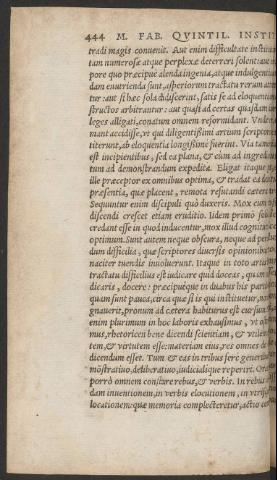 444 M. FAB. QVINTIL. INSTIT
tradi magis conuenit. Aut enim difficultate
tam numerosæ atque perplexæ deterreri solent: aut
pore quo præcipuè alenda ingenia, atque indulgentia
dam enutrienda sunt, asperiorum tractatu rerum
tur: aut si hæc sola didiscerint, satis se ad eloquentiam
structos arbitrantur: aut quasi ad certas quasdam
leges alligati, conatum omnem reformidant. Vnde
mant accidisse, vt qui diligentissimi artium scriptores
titerunt, ab eloquentia longissimè fuerint. Via tamen
est incipientibus, sed ea plana, & cùm ad ingrediendum
tum ad demonstrandum expedita. Eligat itaque
ille præceptor ex omnibus optima, & tradat ea
præsentia, quæ placent, remota refutandi cætera
Sequuntur enim discipuli quò duxerit. Mox cum
discendi crescet etiam eruditio. Iidem primò solum
credant esse in quod inducentur, mox illud cognituri
optimum. Sunt autem neque obscura, neque ad
dum difficilia, quæ scriptores diuersis opinionibus
naciter tuendis inuoluerunt. Itaque in toto artis
tractatu difficilius est iudicare quid doceas, quàm
dicaris, docere: præcipuéque in duabus his partibus
quàm sunt pauca, circa quæ si is qui instituetur, non
gnauerit, pronum ad cætera habiturus est cursum.
enim plurimum in hoc laboris exhausimus, vt
mus, rhetoricen bene dicendi scientiam, & vtilem,
tem, & virtutem esse: materiam eius, res omnes de
dicendum esset. Tum & eas in tribus ferè generibus
mōstratiuo, deliberatiuo, iudicialíque reperiri.
porrò omnem constare rebus, & verbis. In rebus
dam inuentionem, in verbis elocutionem, in
locationem: quæ memoria complecteretur, actio